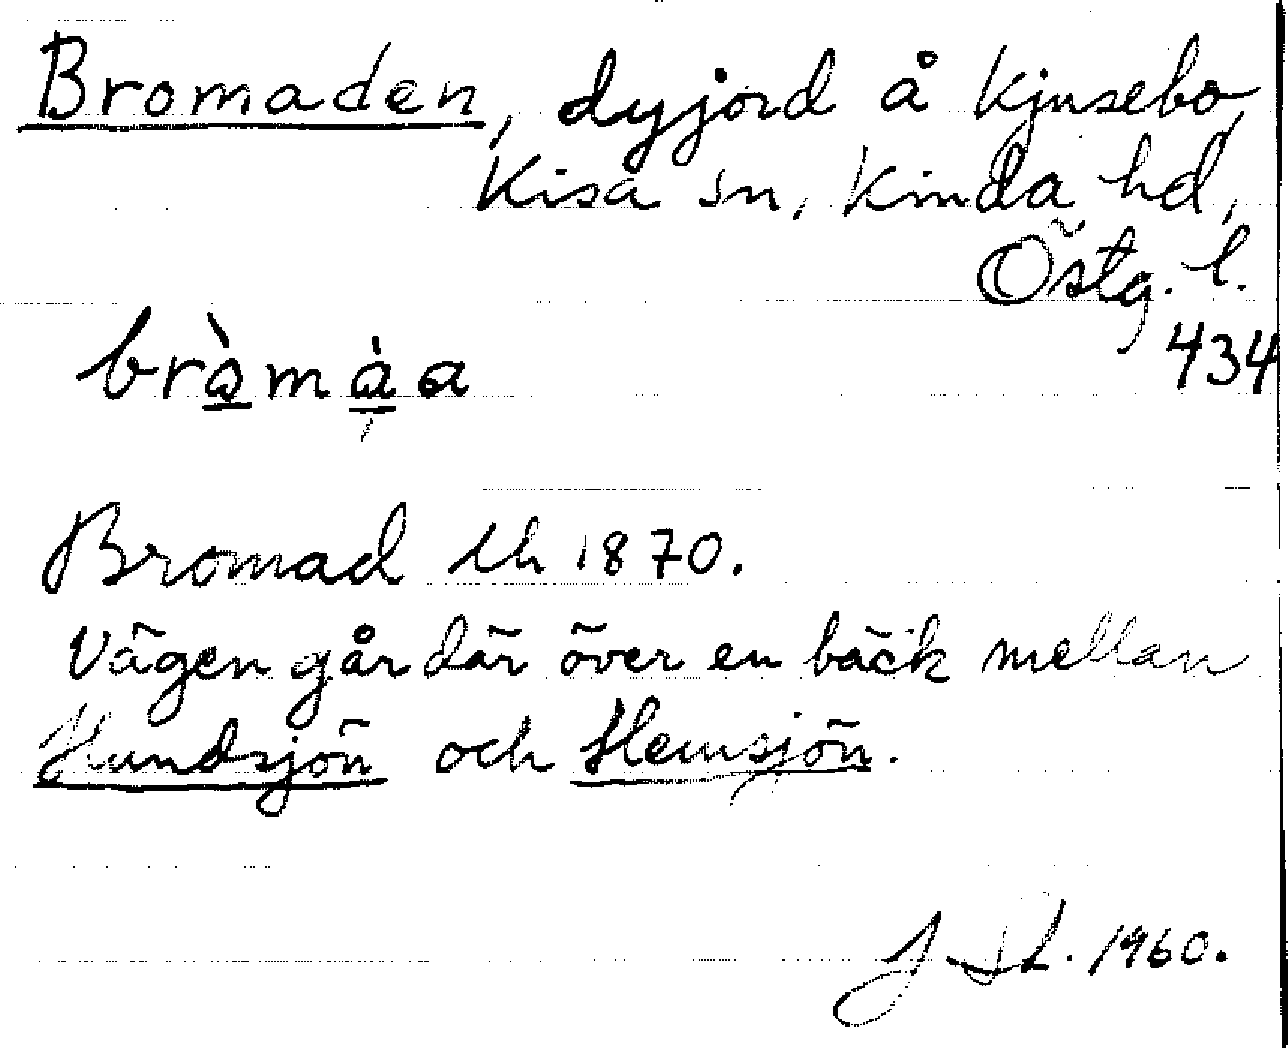 Bromaden, dyjord å Kjusebo,
Kisa sn, Kinda hd,
Östg. l.
434
bràmàa
Bromad Uh 1870.
Vägen går där över en bäck mellan
Hundsjön och Hemsjön.
1960.